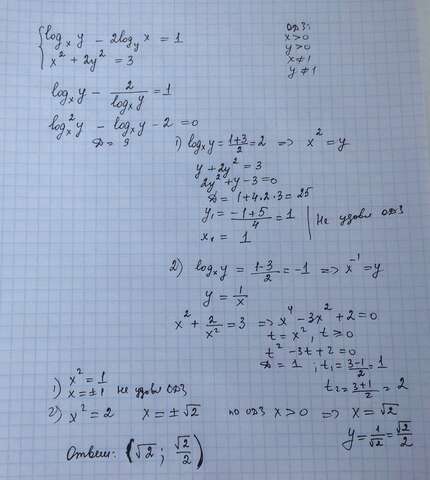 { log_x y - 2log_y x = 1
x² + 2y² = 3
ОДЗ:
x>0
y>0
x≠1
y≠1
log_x y - 2/log_x y = 1
log²_x y - log_x y - 2 = 0
D = 9
1) log_x y = (1+3)/2 = 2 => x² = y
y + 2y² = 3
2y² + y - 3 = 0
D = 1 + 4·2·3 = 25
y₁ = (-1+5)/4 = 1
x₁ = 1
Не удовл ОДЗ
2) log_x y = (1-3)/2 = -1 => x⁻¹ = y
y = 1/x
x² + 2/x² = 3 => x⁴ - 3x² + 2 = 0
t = x², t ≥ 0
t² - 3t + 2 = 0
D = 1 ; t₁ = (3-1)/2 = 1
t₂ = (3+1)/2 = 2
1) x² = 1
x = ±1 не удовл ОДЗ
2) x² = 2 x = ±√2 по ОДЗ x > 0 => x = √2
y = 1/√2 = √2/2
Ответ: (√2 ; √2/2)